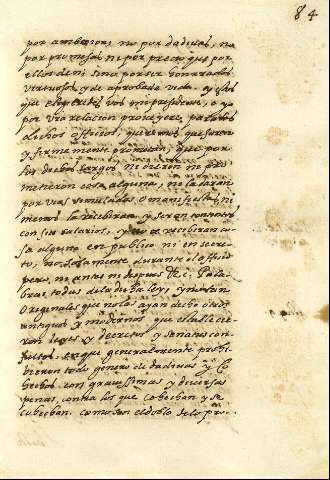 84
por ambicion, no por dadivas, ni
por promesas ni por precio que por
ellos den sino por ser honrrados
virtuosos y de aprobada vida. y los
que eligiredes vos mi presidente, o yo
por vra relacion proveyere, para los
dichos officios, queremos que juren
y firmemente prometan, que por
los dichos cargos, ni dieron ni pro
metieron cosa alguna, ni la daran
por vias simuladas o manifiestas, ni
menos la recibiran y seran contentos
con sus salarios, y no recibiran co
sa alguna en publico ni en secre
to, no solamente durante el officio
pero, ni antes ni despues de el, Pala
bras todas de la dicha ley, y no son
originales que no los ayan dicho otros
antiguos y modernos que establecie
ron leyes y decretos y senatus con
sultos, en que generalmente prohi
bieron todo genero de dadivas y co
hechos, con gravissimas y diversas
penas, contra los que cohechan y se
cohechan. como son el doblo de lo pro